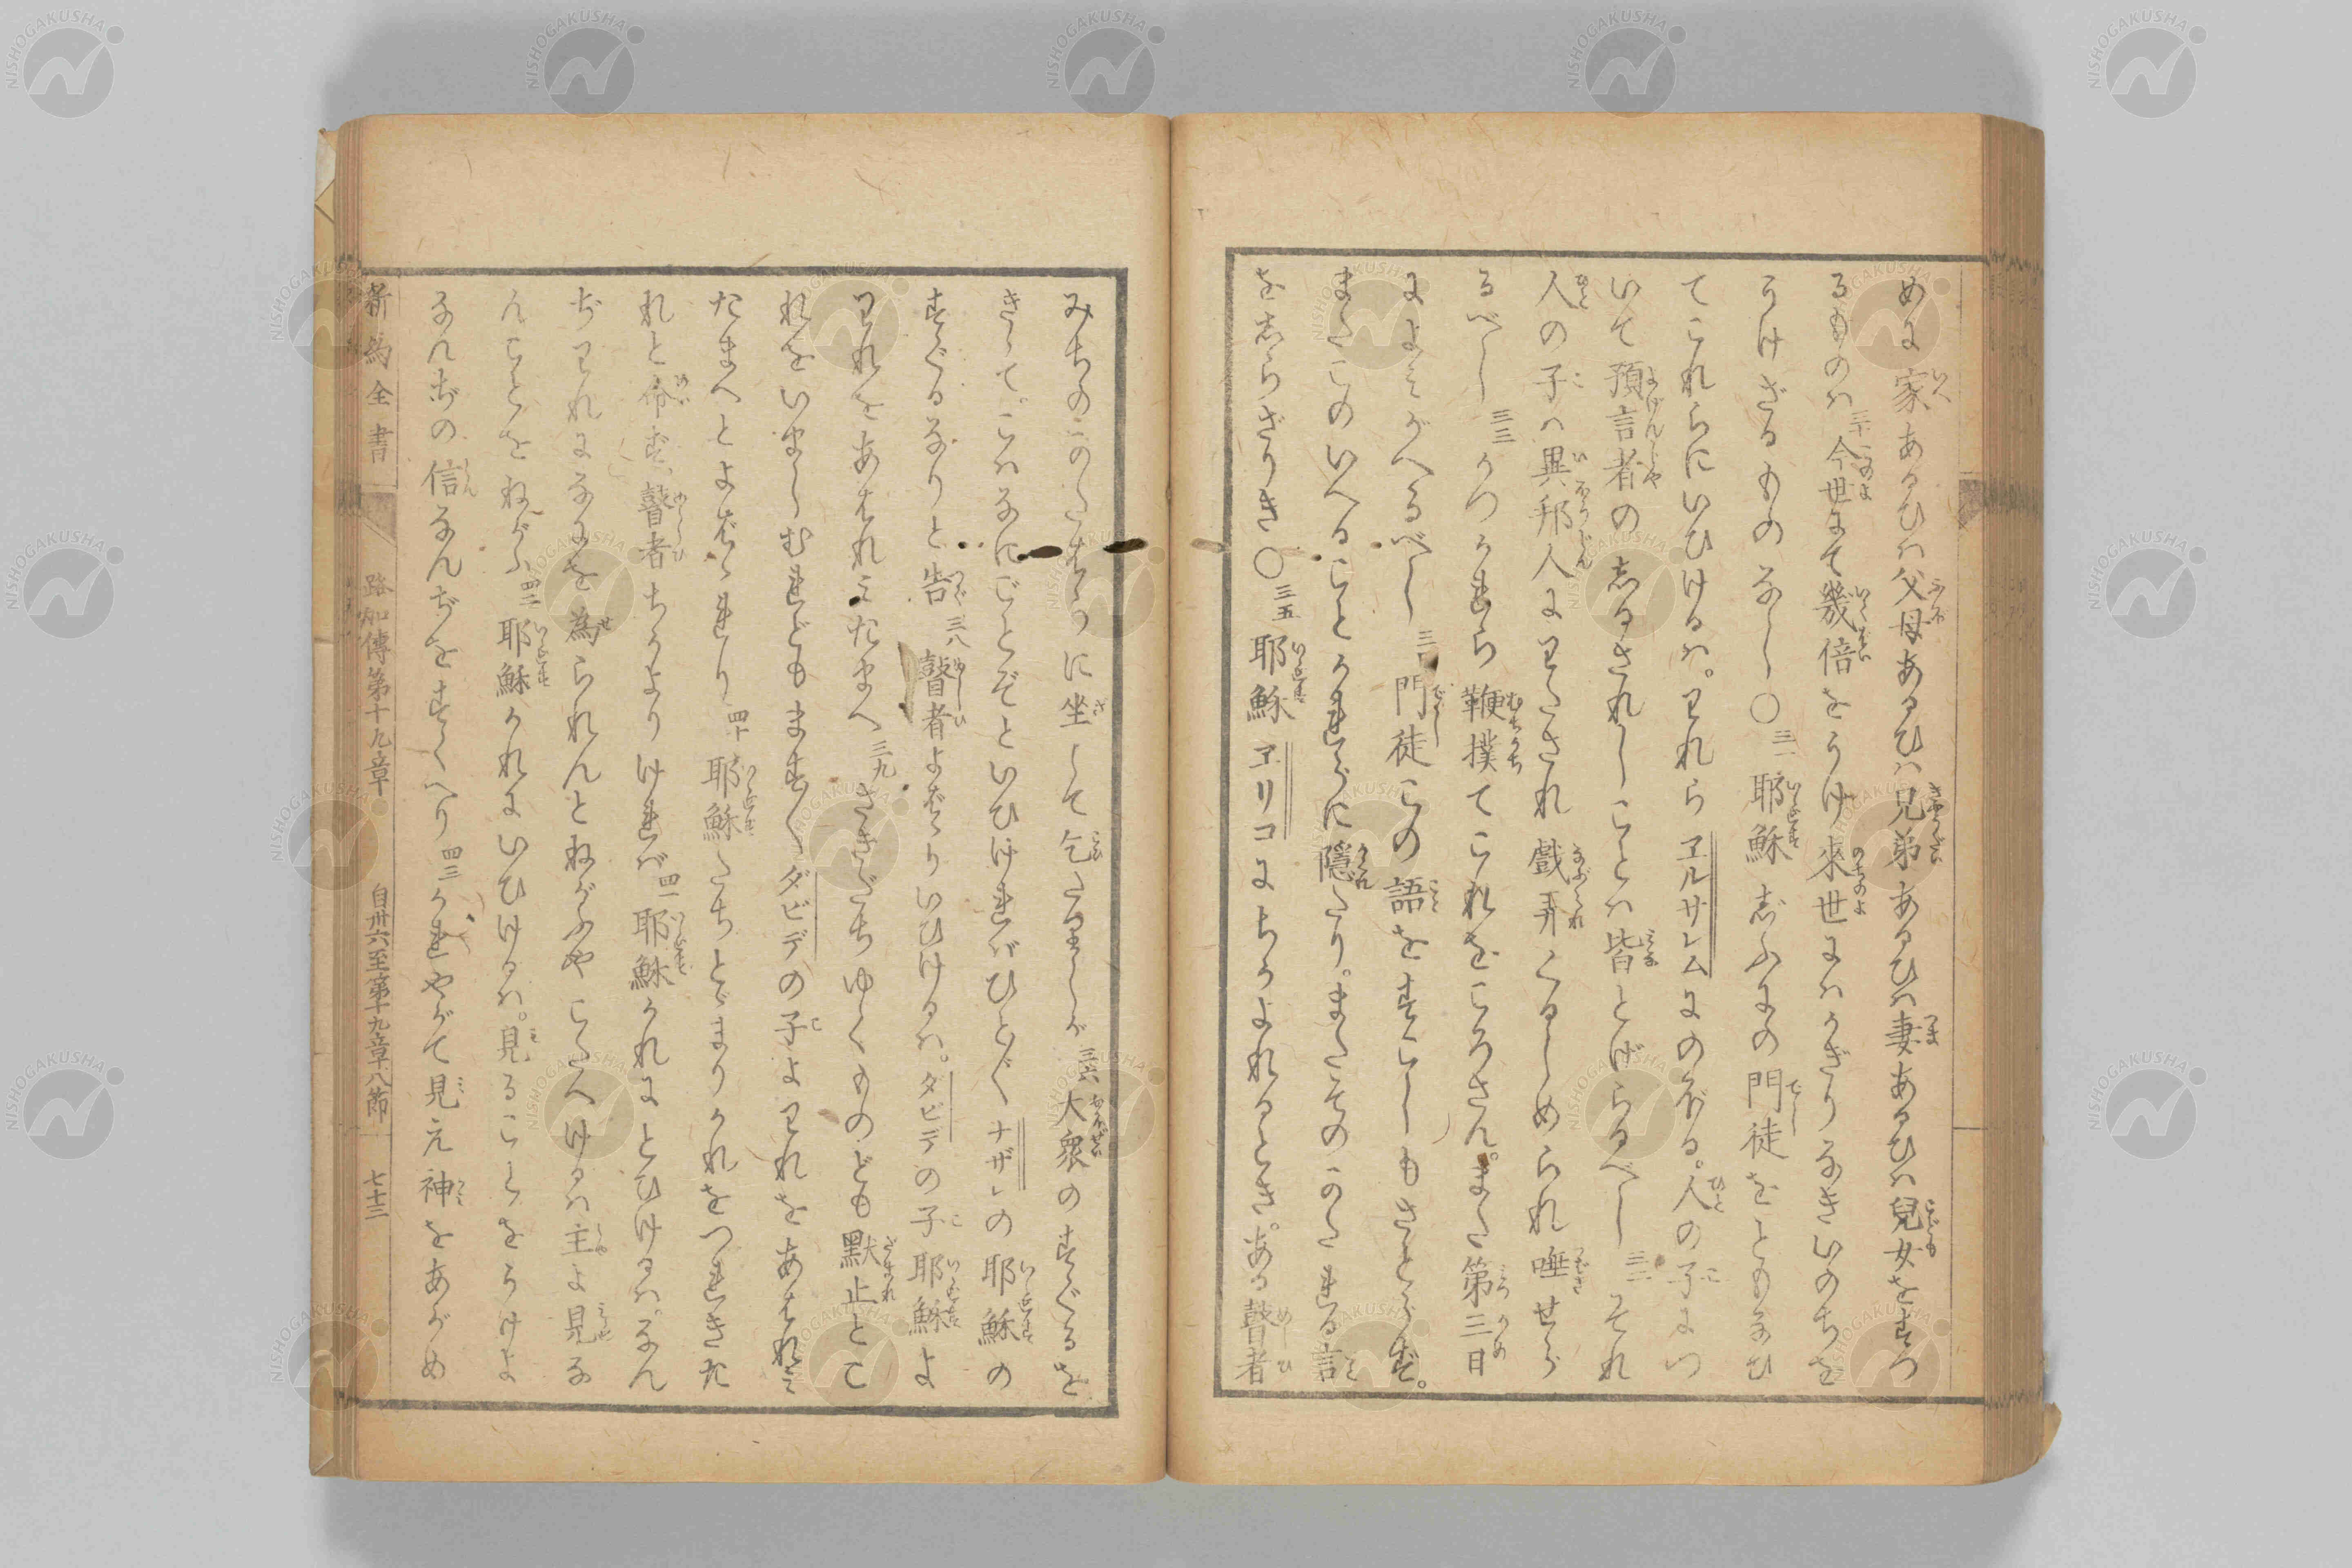 めに家あるひは父母あるひは兄弟あるひは妻あるひは兒女をすつ
るものは三十今世にて幾倍をうけ來世にはかぎりなきいのちを
うけざるものなし〇三一耶穌志ふにの門徒をともなひ
てこれらにいひけるは。われらヱルサレムにのぼる。人の子につ
いて預言者の志るされしことは皆とげらるべし三二それ
人の子は異邦人にわたされ戲弄くるしめられ唾せら
るべし三三かつかれら鞭撲てこれをころさん。また第三日
によみがへるべし三四門徒この語をすこしもさとらず。
またこのいへることかれらに隱たり。またそののたまへる言
を志らざりき〇三五耶穌ヱリコにちかよれるとき。ある瞽者
みちのかたはらに坐して乞たりしが三六大衆のすぐるを
きゝて。こはなにごとぞといひければひと〴〵ナザレの耶穌の
すぐるなりと告三八瞽者よばゝりいひけるは。ダビデの子耶穌よ
われをあはれみたまへ三九さきだちゆくものども默止とこ
れをいましむれどもます〳〵ダビデの子よわれをあはれみ
たまへとよばゝれり四十耶穌たちとゞまりかれをつれきた
れと命ず。瞽者ちかよりければ四一耶穌かれにとひけるは。なん
ぢわれになにを為られんとねがふやこたへけるは主よ見な
んことをねがふ四二耶穌かれにいひけるは。見ることをうけよ
なんぢの信なんぢをすくへり四三かれやがて見え神をあがめ
新約全書 路加傳第十九章 自卅六至第十九章八節 七十三
NISHOGAKUSHA